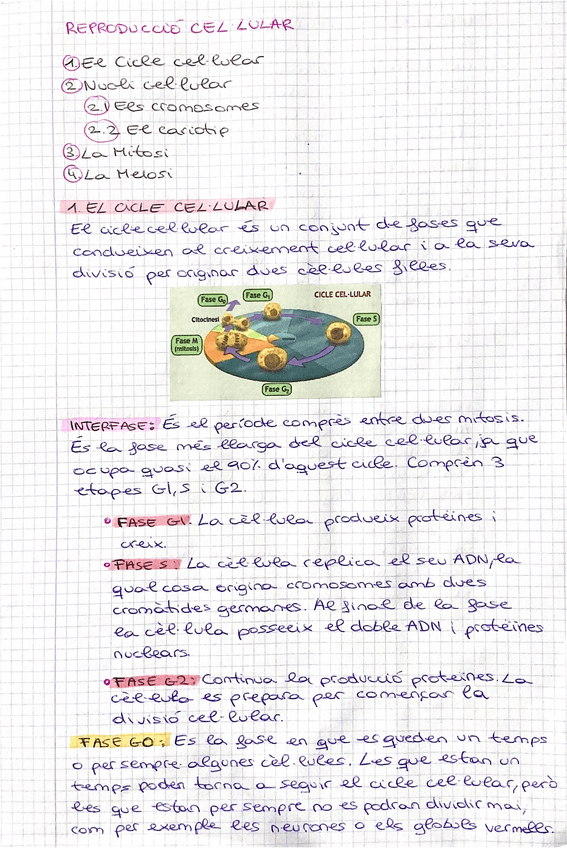 REPRODUCCIÓ CEL·LULAR
1. El Cicle cel·lular
2. Nucli cel·lular
2.1 Els cromosomes
2.2 El cariotip
3. La Mitosi
4. La Meiosi
1. EL CICLE CEL·LULAR
El cicle cel·lular és un conjunt de fases que
condueixen al creixement cel·lular i a la seva
divisió per originar dues cèl·lules filles.
CICLE CEL·LULAR
Fase G0
Fase G1
Citocinesi
Fase S
Fase M
(mitosis)
Fase G2
INTERFASE: És el període comprès entre dues mitosis.
És la fase més llarga del cicle cel·lular, ja que
ocupa quasi el 90% d'aquest cicle. Comprèn 3
etapes G1, S i G2.
FASE G1. La cèl·lula produeix proteïnes i
creix.
FASE S: La cèl·lula replica el seu ADN, la
qual cosa origina cromosomes amb dues
cromàtides germanes. Al final de la fase
la cèl·lula posseeix el doble ADN i proteïnes
nuclears.
FASE G2: Continua la producció proteïnes. La
cèl·lula es prepara per començar la
divisió cel·lular.
FASE G0: És la fase en que es queden un temps
o per sempre algunes cèl·lules. Les que estan un
temps poden torna a seguir el cicle cel·lular, però
les que estan per sempre no es podran dividir mai,
com per exemple les neurones o els glòbuls vermells.